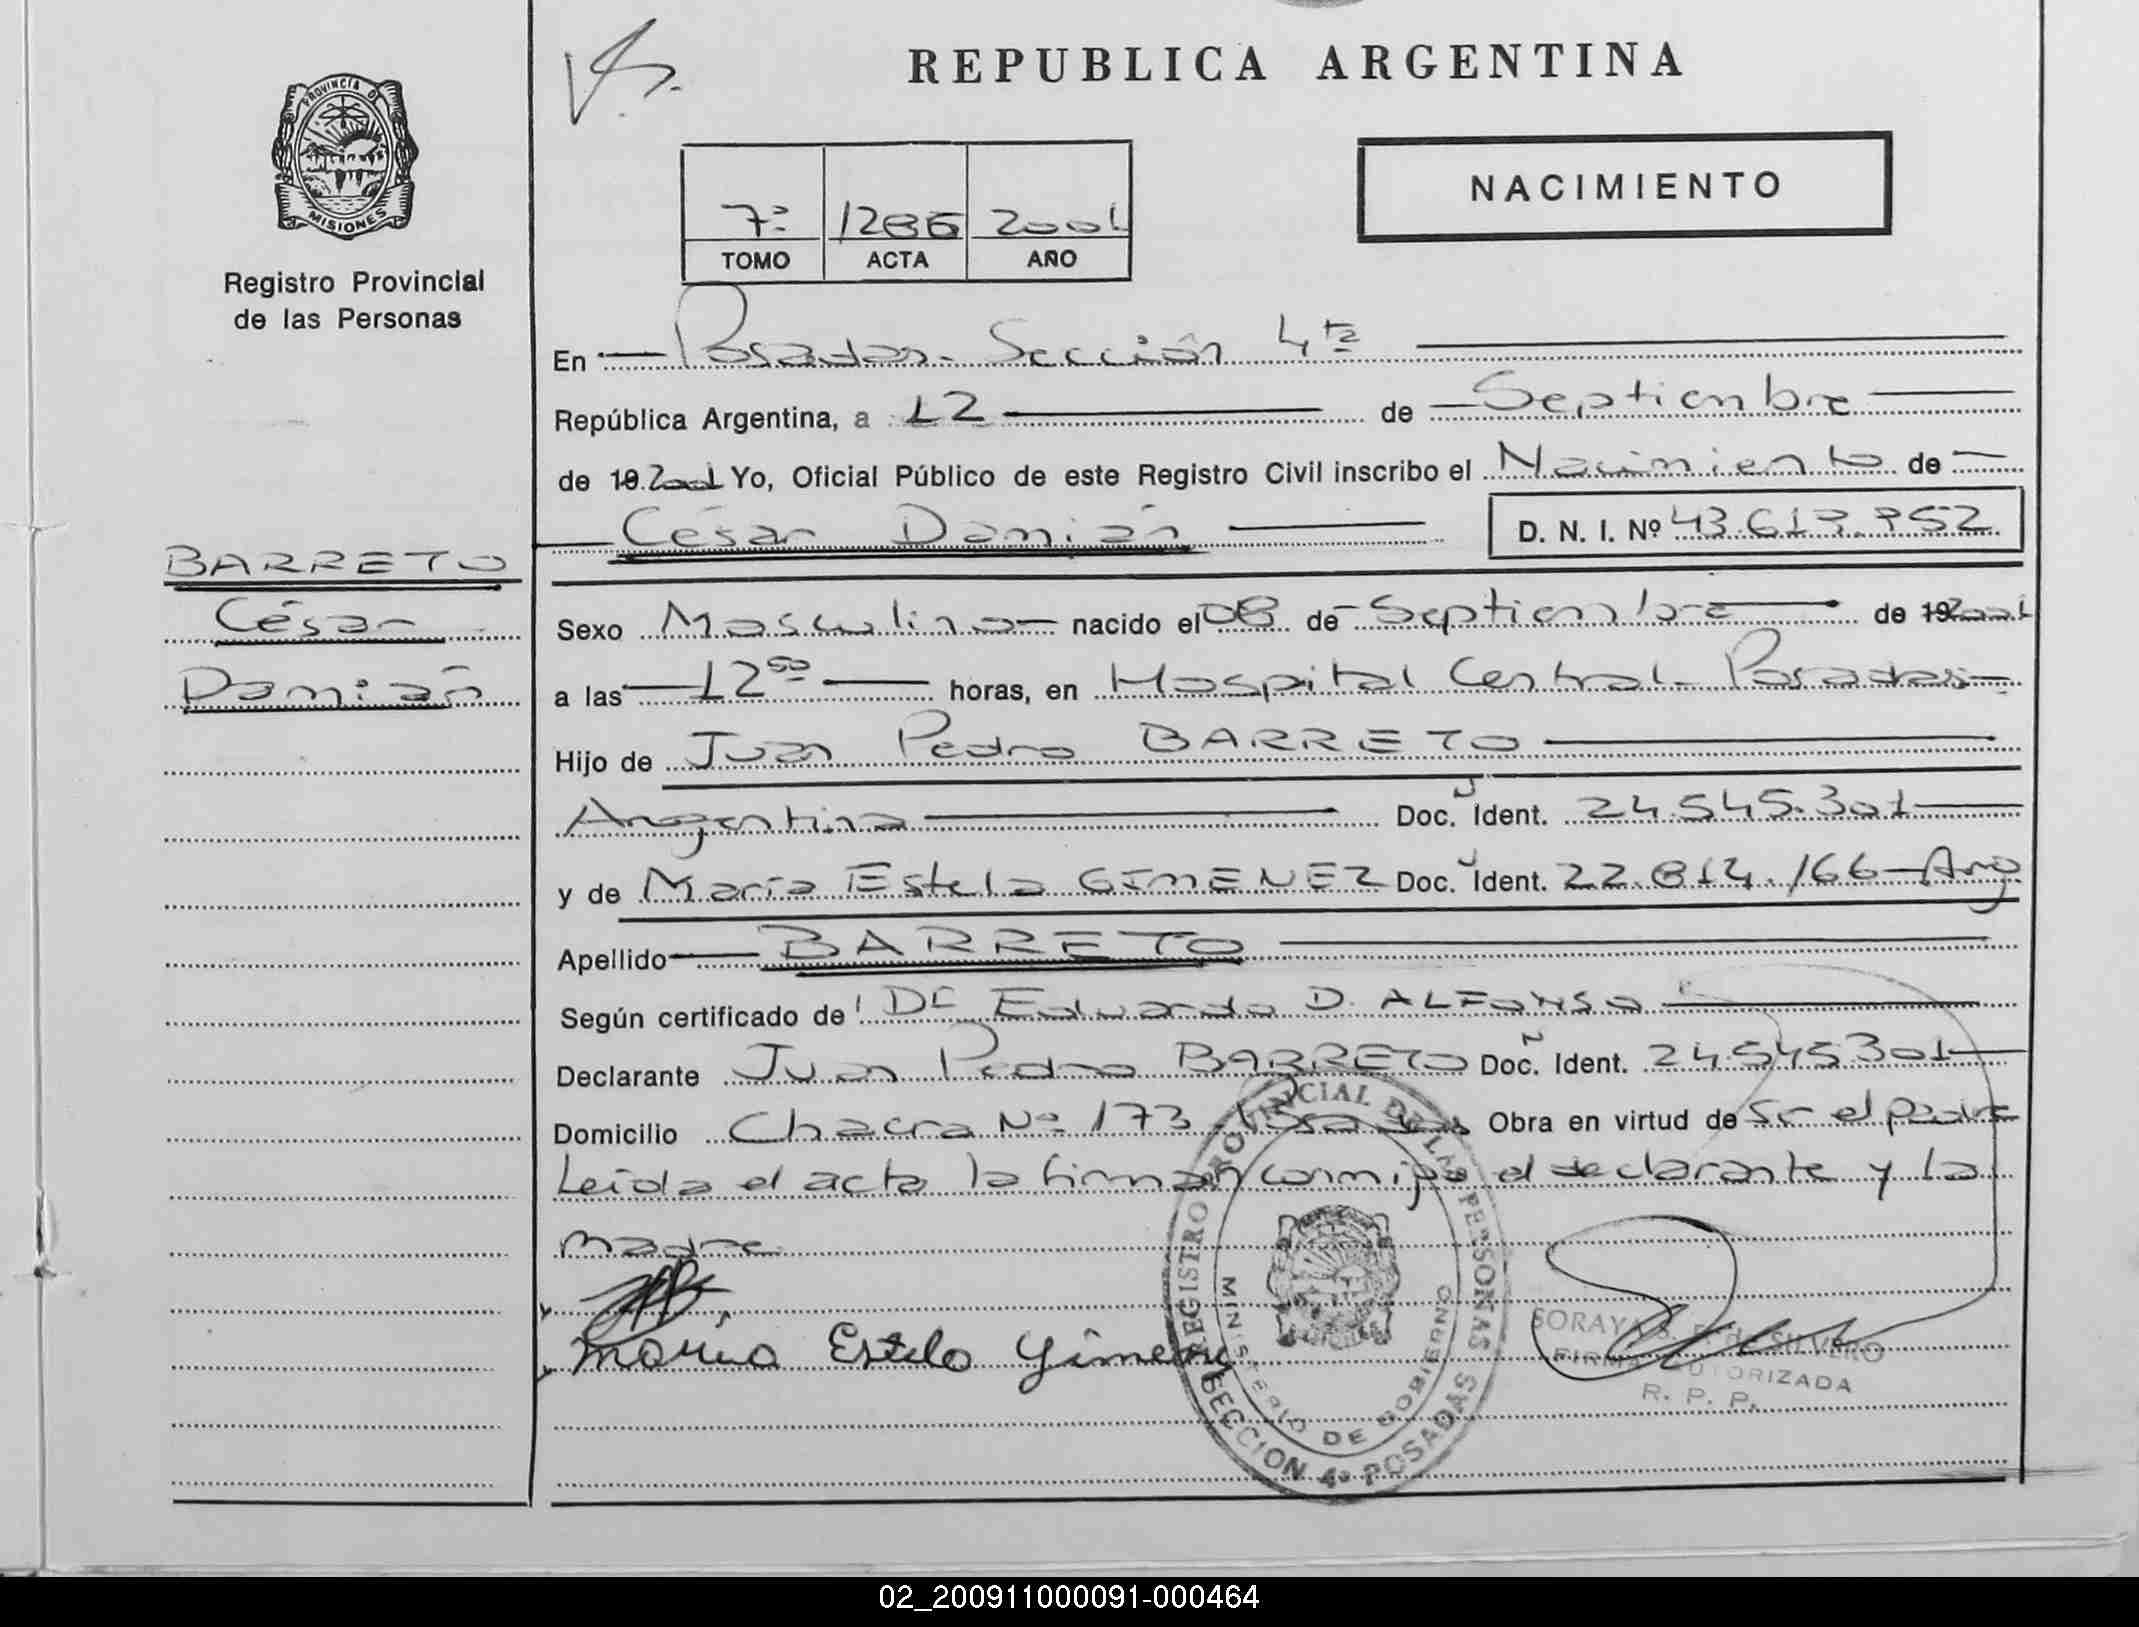 REPUBLICA ARGENTINA
PROVINCIA DE
MISIONES
Registro Provincial
de las Personas
NACIMIENTO
7º 1286 2001
TOMO ACTA AÑO
En Posadas - Sección 4ta
República Argentina, a 12 de Septiembre
de 19 2001 Yo, Oficial Público de este Registro Civil inscribo el Nacimiento de
César Damián D. N. I. Nº
BARRETO
César
Damián
Sexo Masculino nacido el 08 de Septiembre de 19 2001
a las 12 50 horas, en Hospital Central - Posadas
Hijo de Juan Pedro BARRETO
Argentina Doc. Ident. 24.545.301
y de María Estela GIMENEZ Doc. Ident. 22.814.166 - Arg
Apellido BARRETO
Según certificado de Dr Eduardo D. ALFONSO
Declarante Juan Pedro BARRETO Doc. Ident. 24.545.301
Domicilio Chacra Nº 173 Posadas Obra en virtud de Sr el padre
Leída el acta la firman conmigo el declarante y la
madre
María Estela Gimenez
REGISTRO PROVINCIAL DE LAS PERSONAS
MINISTERIO DE GOBIERNO
SECCION 4ª POSADAS
SORAYA S. de SILVERO
FIRMA AUTORIZADA
R. P. P.
02_200911000091-000464